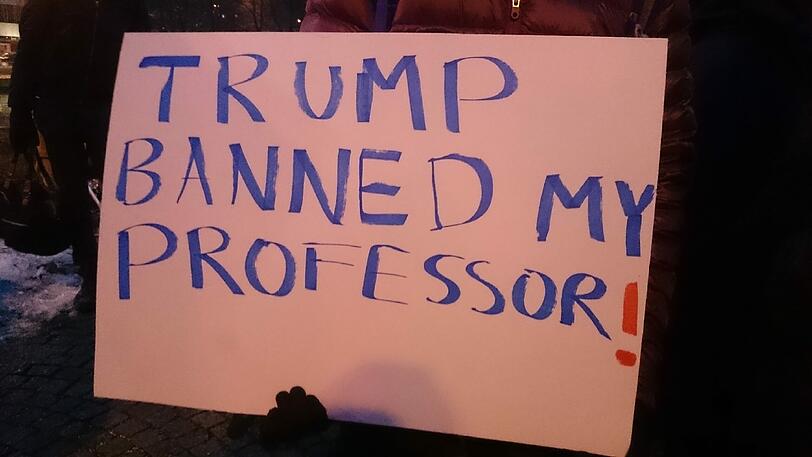 TRUMP
BANNED MY
PROFESSOR!